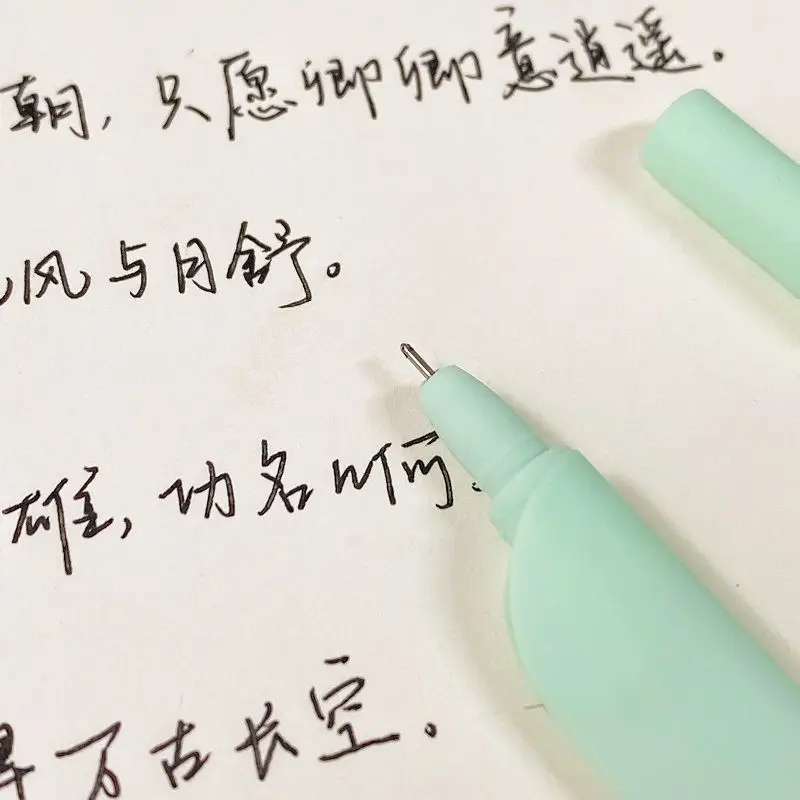 朝，只愿卿卿意逍遥。
风与月舒。
雄，功名何
万古长空。